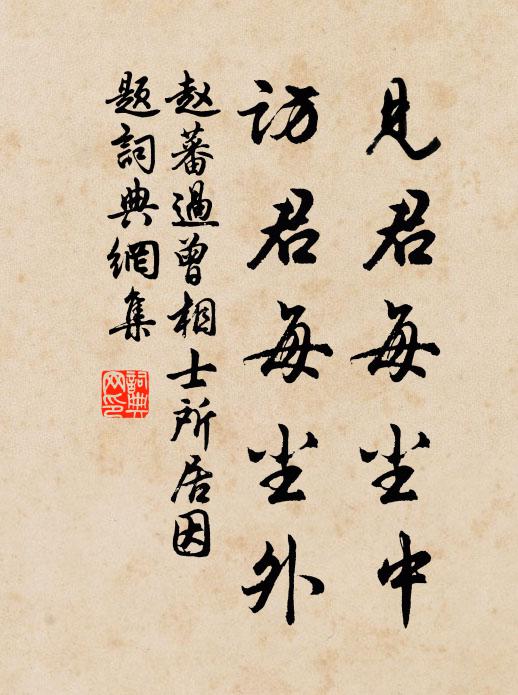 见君每尘中
访君每尘外
赵蕃过曾相士所居因
题词典網集
詞典
网印